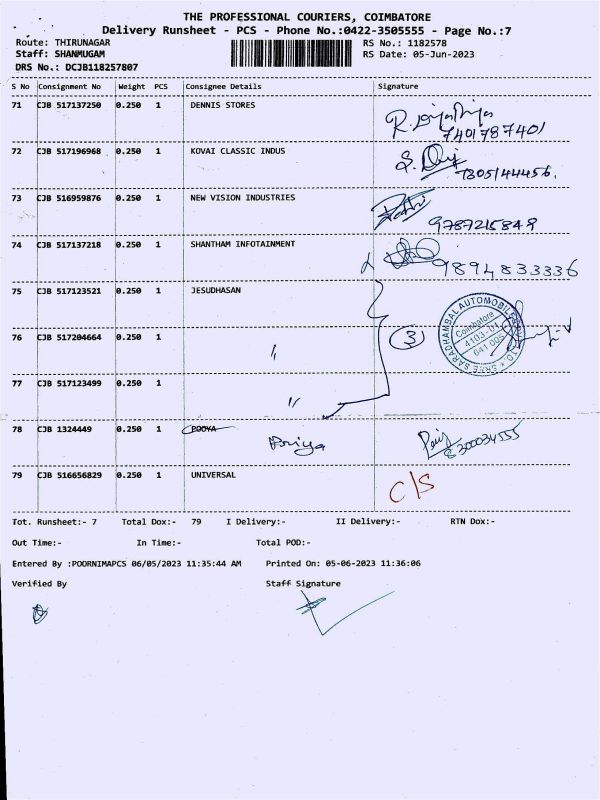 THE PROFESSIONAL COURIERS, COIMBATORE
Delivery Runsheet - PCS - Phone No.:0422-3505555 - Page No.:7
Route: THIRUNAGAR RS No.: 1182578
Staff: SHANMUGAM RS Date: 05-Jun-2023
DRS No.: DCJB118257807
S No Consignment No Weight PCS Consignee Details Signature
71 CJB 517137250 0.250 1 DENNIS STORES
7401787401
72 CJB 517196968 0.250 1 KOVAI CLASSIC INDUS
7305144456.
73 CJB 516959876 0.250 1 NEW VISION INDUSTRIES
9787215849
74 CJB 517137218 0.250 1 SHANTHAM INFOTAINMENT
9894833336
75 CJB 517123521 0.250 1 JESUDHASAN
76 CJB 517204664 0.250 1 〃 3
SREE SARADHAMBAL AUTOMOBILES
Coimbatore
641 005
77 CJB 517123499 0.250 1 〃
78 CJB 1324449 0.250 1 POOVA Priya
8300034555
79 CJB 516656829 0.250 1 UNIVERSAL C/S
Tot. Runsheet:- 7 Total Dox:- 79 I Delivery:- II Delivery:- RTN Dox:-
Out Time:- In Time:- Total POD:-
Entered By :POORNIMAPCS 06/05/2023 11:35:44 AM Printed On: 05-06-2023 11:36:06
Verified By Staff Signature